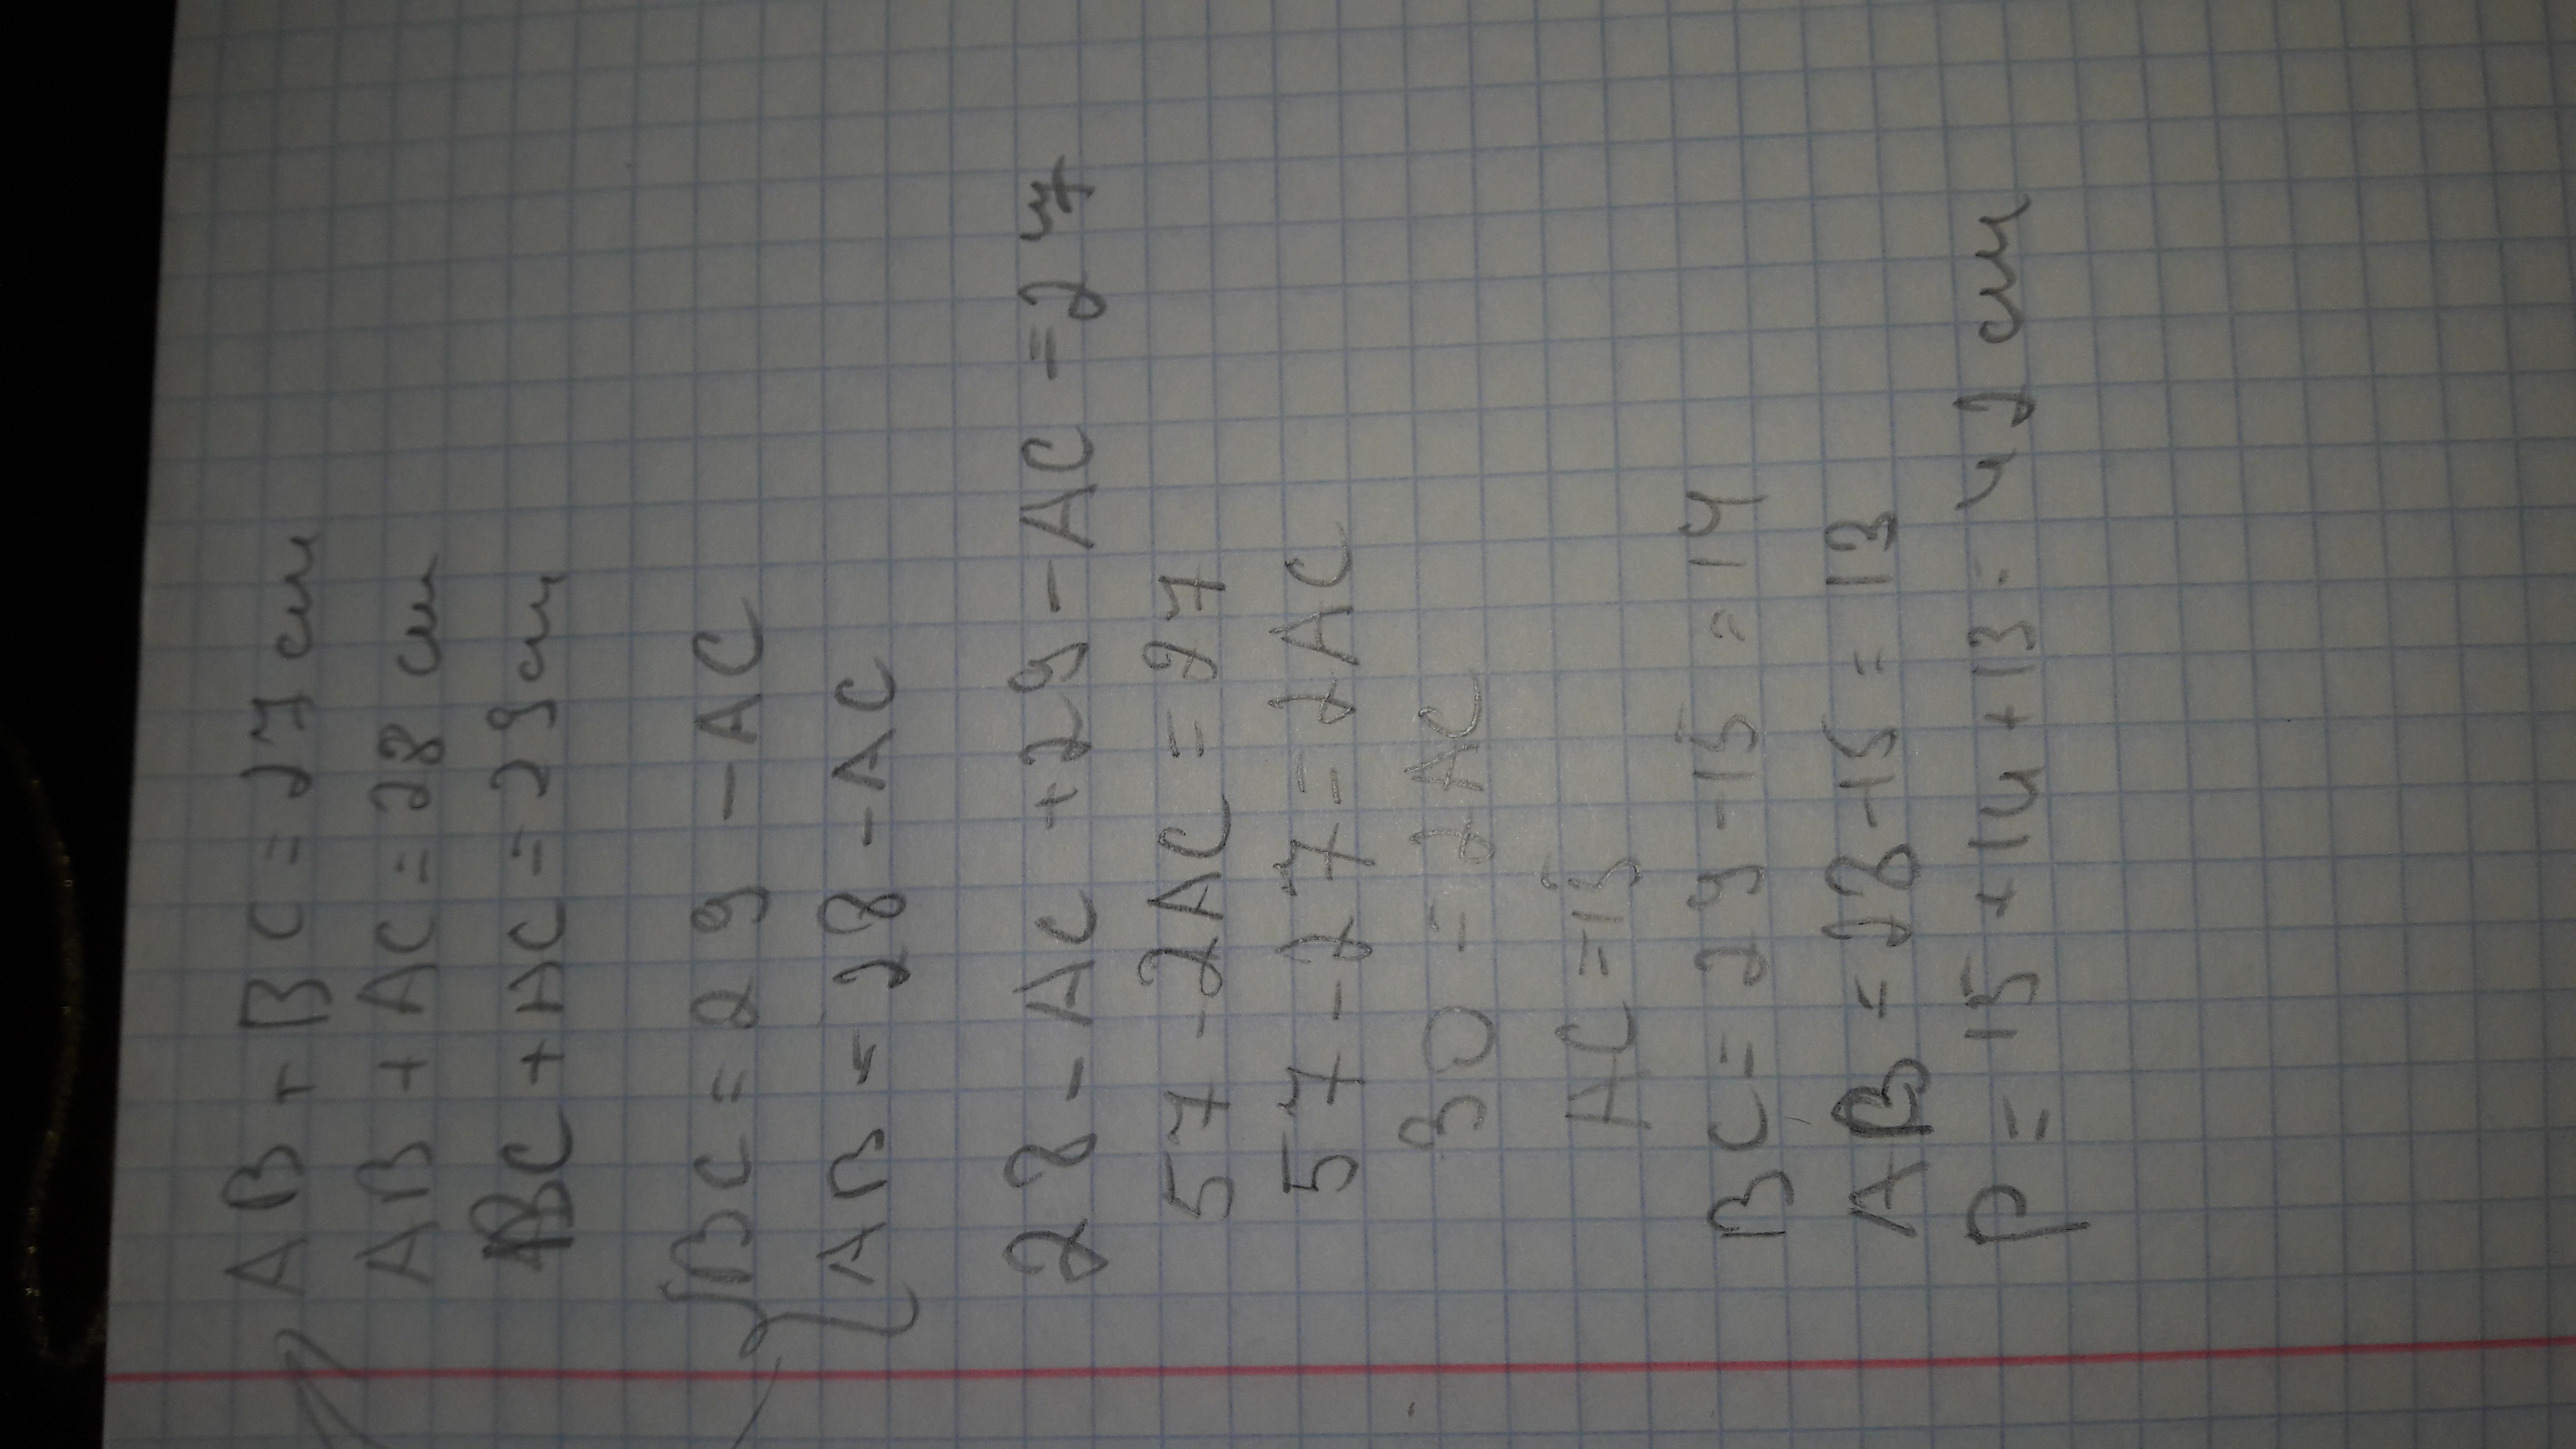 AB + BC = 27 см
AB + AC = 28 см
BC + AC = 29 см
BC = 29 - AC
AB = 28 - AC
28 - AC + 29 - AC = 27
57 - 2AC = 27
57 - 27 = 2AC
30 = 2AC
AC = 15
BC = 29 - 15 = 14
AB = 28 - 15 = 13
P = 15 + 14 + 13 = 42 см